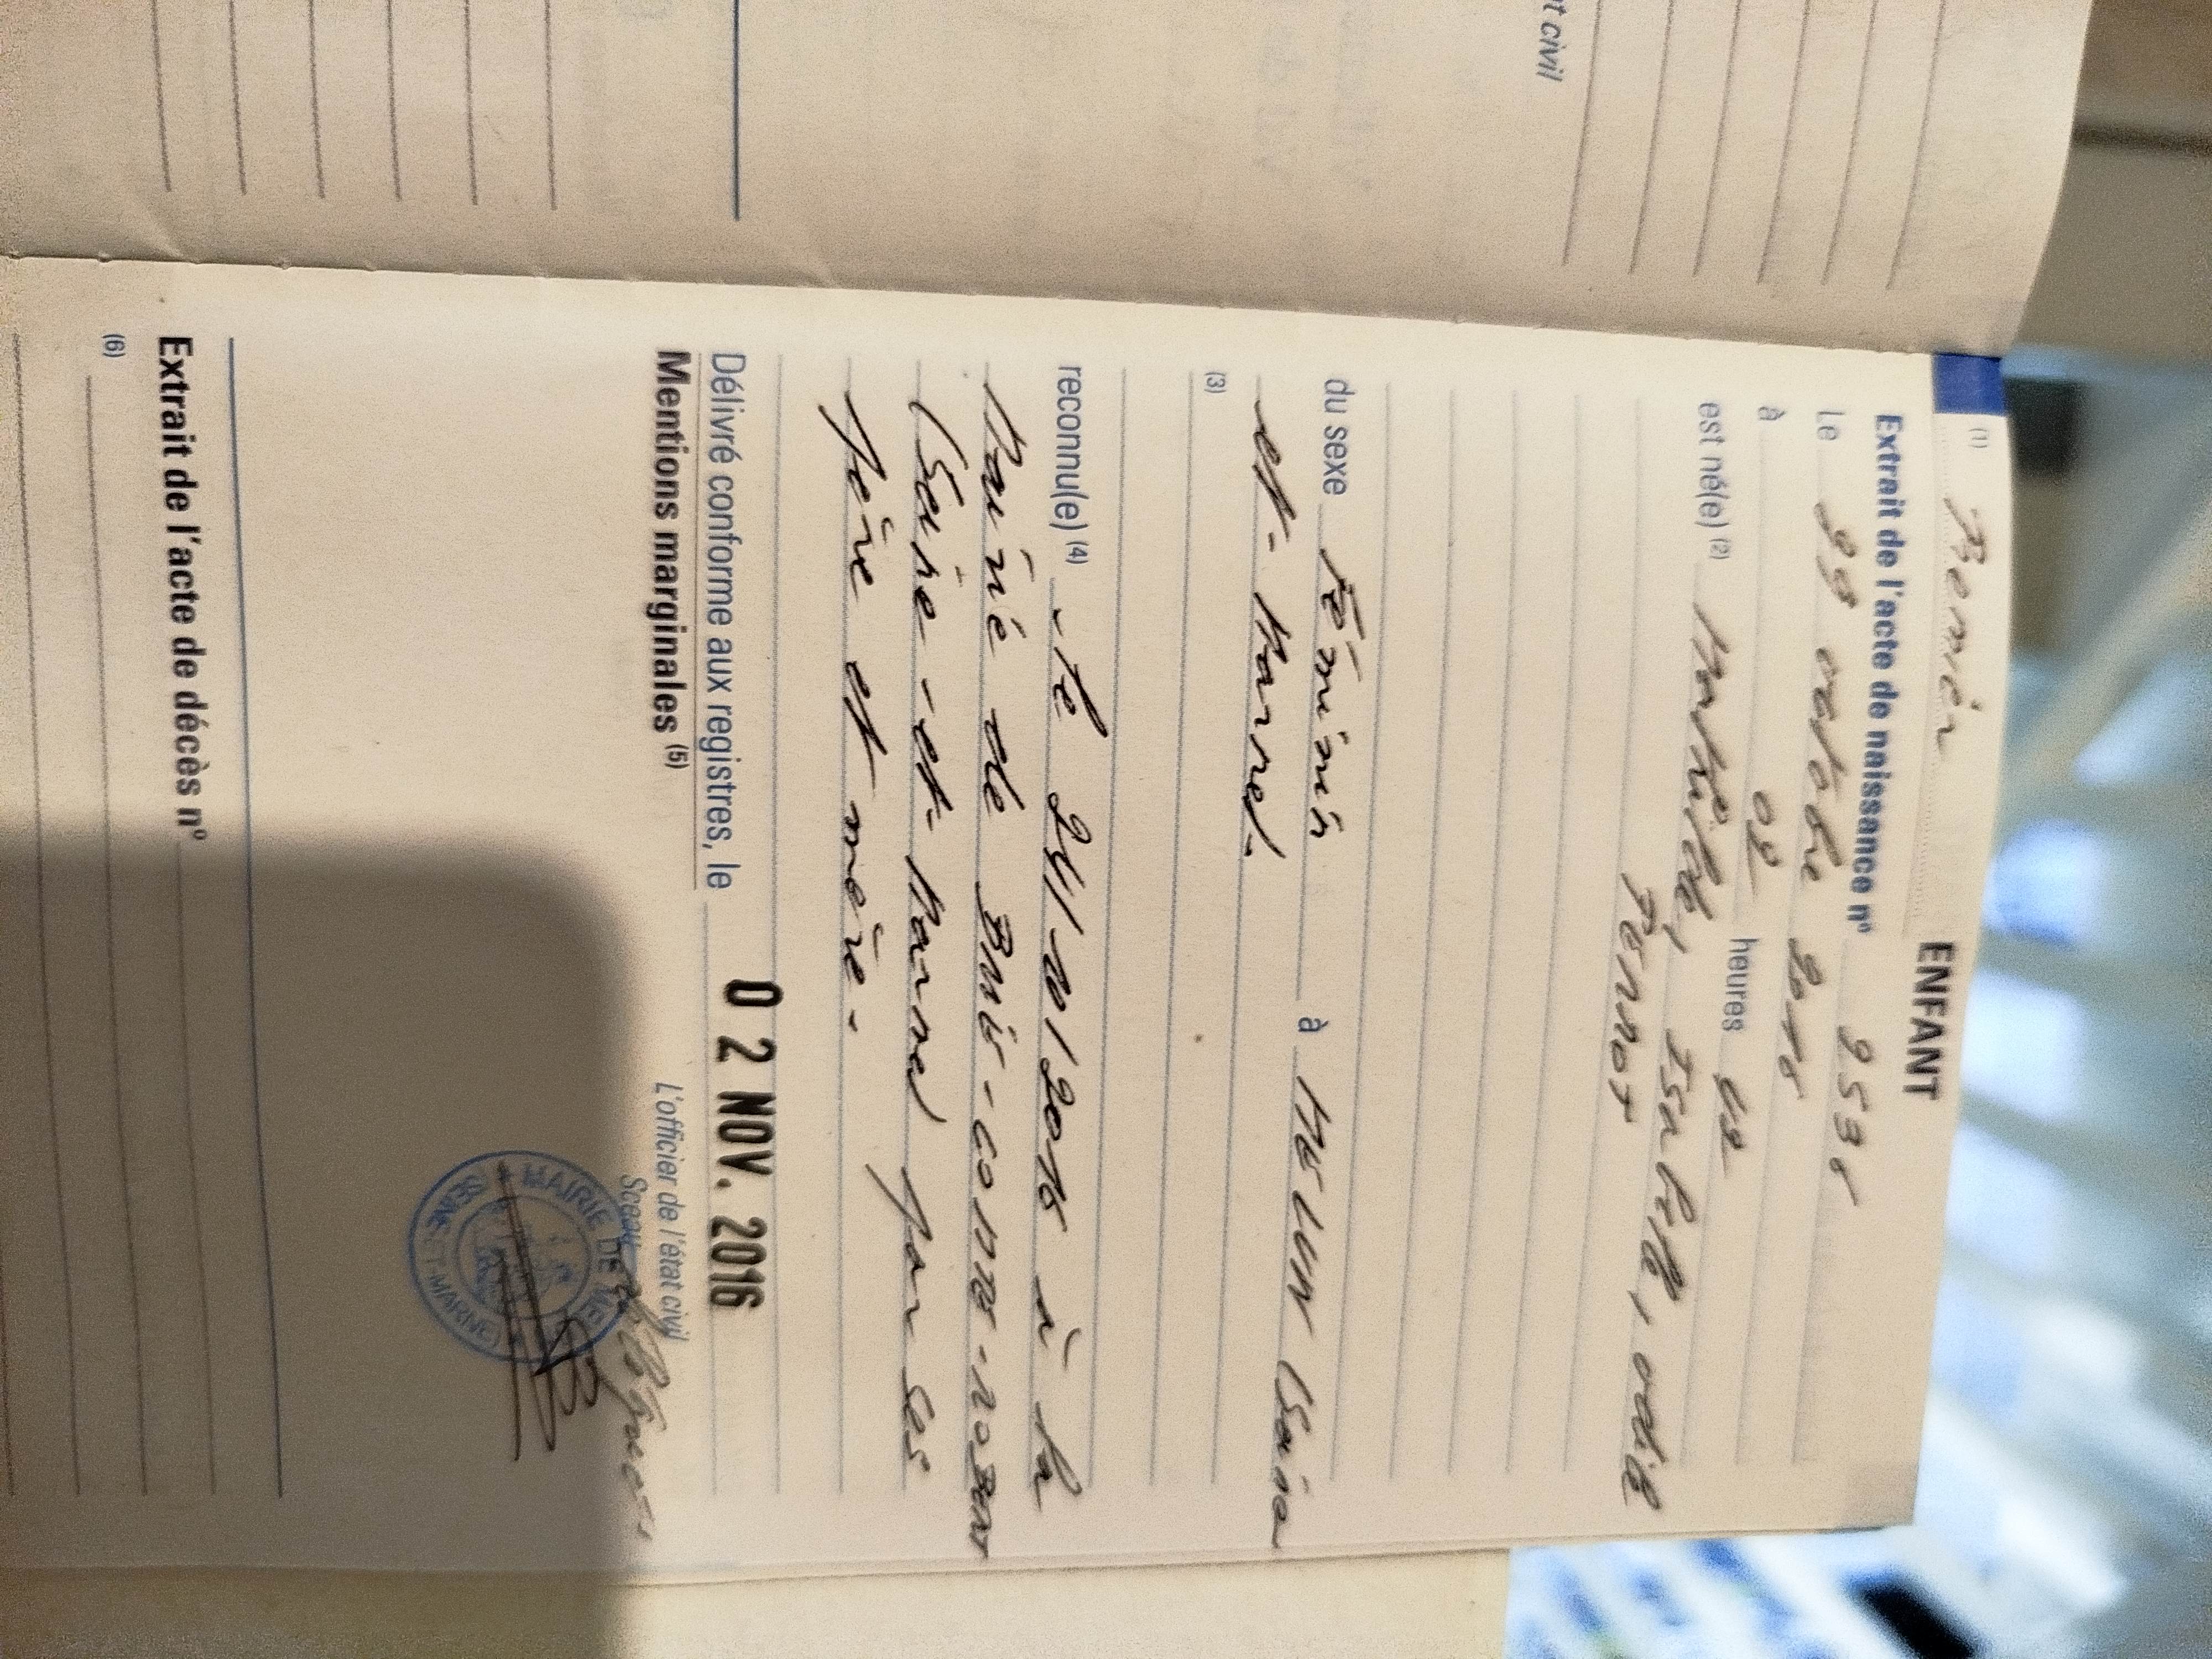 t civil
(1) Premier ENFANT
Extrait de l'acte de naissance nº 2538
Le 29 octobre 2016
à 02 heures 42
est né(e) (2) Mathilde, Isabelle, Odile
PERNOT
du sexe Féminin à MELUN (Seine
et-Marne)-
(3)
reconnu(e) (4) le 24/10/2016 à la
Mairie de BRIE-COMTE-ROBERT
(Seine-et-Marne) par ses
père et mère.
Délivré conforme aux registres, le 02 NOV. 2016
Mentions marginales (5) L'officier de l'état civil
Sceau
MAIRIE DE MELUN
(SEINE-ET-MARNE)
Extrait de l'acte de décès nº
(6)